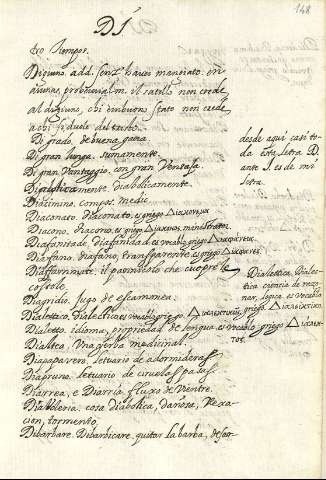 148
DI
tro tiempos.
Digiuno. add. senz' haver mangiato. en
aiunas, proverbialm. il satollo non crede
al digiuno, chi en buono stato non crede
a chi si duole del
Di grado, de buena gana.
Di gran lunga. sumamente.
Di gran Vantaggio, con gran Ventaja
camente. diabolicamente.
Diacimino. compos. medic.
Diaconato. diaconato. es griego
Diacono. diacono. es griego Διακονος.
Diafanitade. diafanidad es vocablo griego
Diafano. diafano, transparente es griego
il pannicolo che cuopre le
costole.
Diagridio. jugo de escamonea.
Dialettico. Dialectico es vocab. griego
Dialetto. idioma, propriedad de lengua es vocablo griego
Dialtea. Una yerba medicinal.
Diapapavero. letuario de adormideras
Diapruno. letuario de ciruelas pasas.
Diarrea, e Diarria fluxo de Vientre.
Diavoleria. cosa diabolica, dañosa, Vexa-
cion, tormento.
Dibarbare. Dibarbicare, quitar la barba, deser-
desde aqui casi to-
da esta letra D.
ante I. es de mi
letra
Dialettica, Dialec-
tica ciencia de razo-
nar, logica. es vocablo
griego